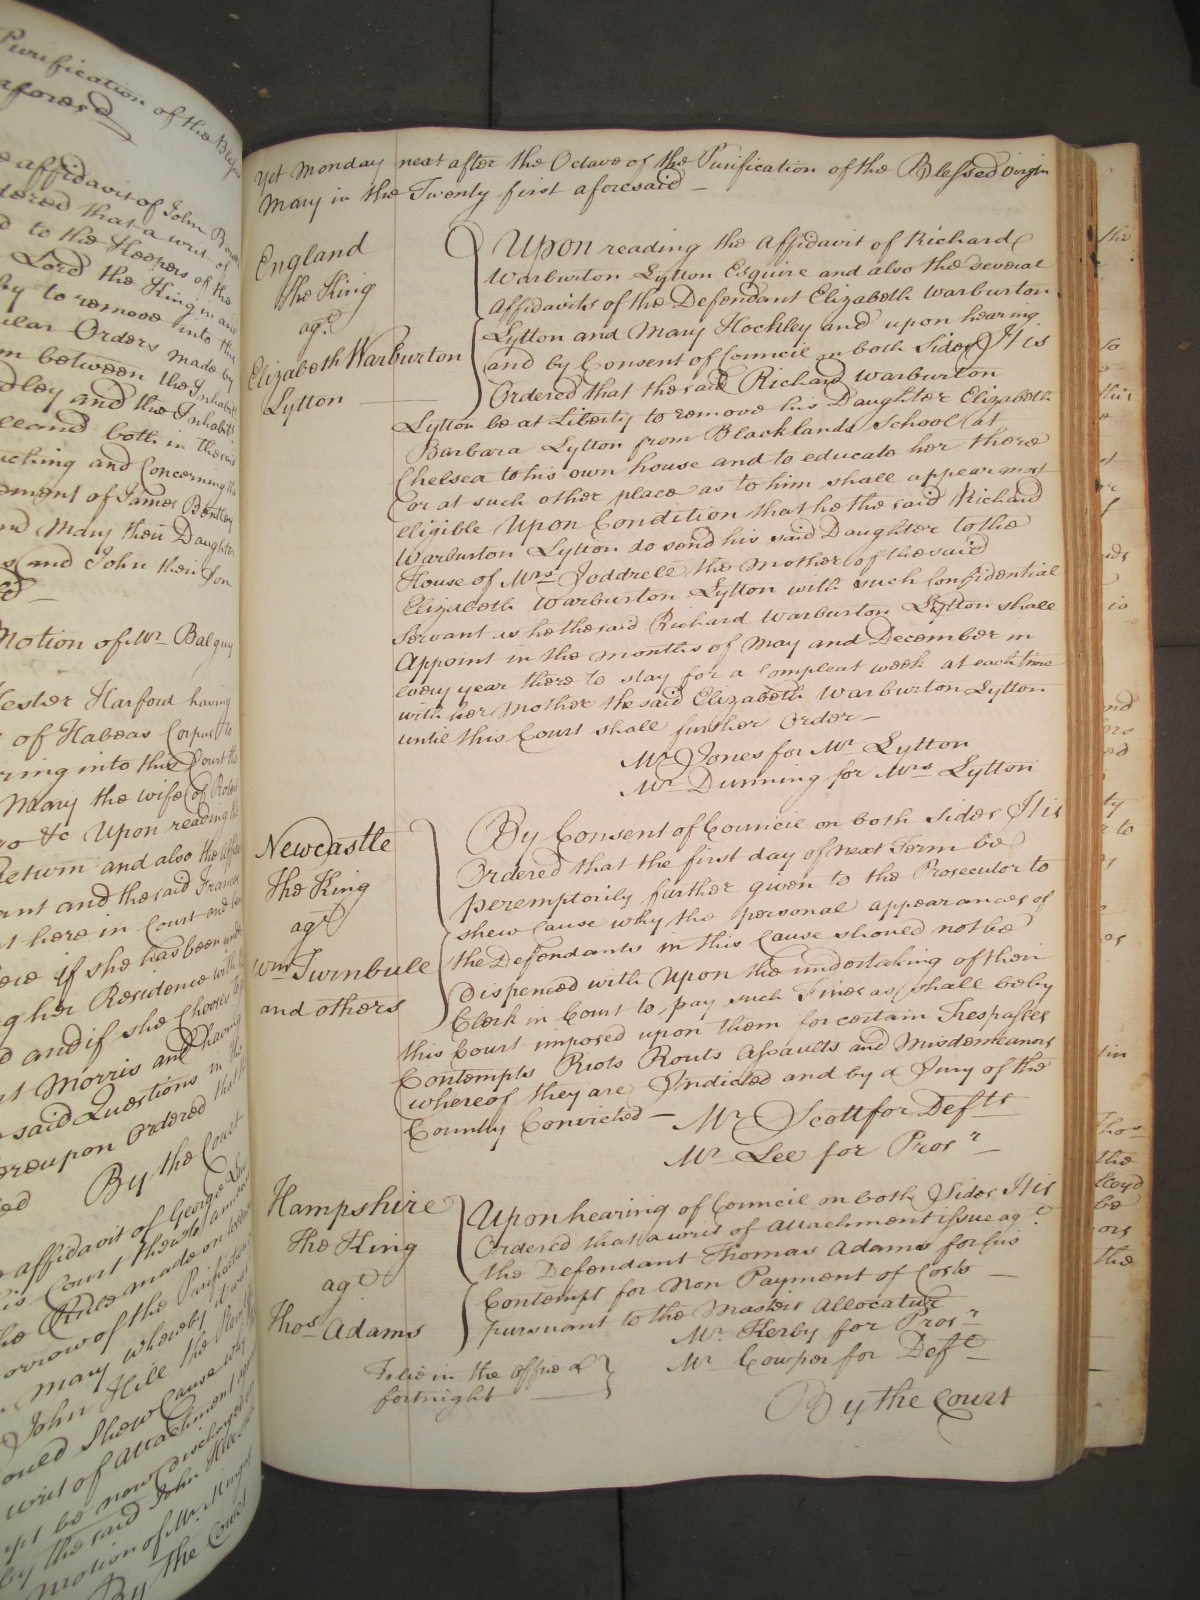 Purification of the Bless
aforesd
affidavit of John
dered that a writ of
d to the Keepers of the
Lord the King in and
by to remove into this
ular Orders made by
n between the Inhabits
dley and the Inhabits
both in the said
uching and Concerning the
ement of James Bentley
nd Mary their Daughter
and John their Son
Motion of Mr. Balguy
Hester Harford having
of Habeas Corpus to
ring into this Court the
Mary the wife of
&c Upon reading the
Return and also the
ant and the said Frances
t here in Court and
if she has been
g her Residence with
d and if she Chooses to
Morris and having
said Questions in the
ereupon Ordered that
By the Court
affidavit of George
is Court
the Rule made on
orrow of the Purification
Mary whereby it was
John Hill the
ould Shew Cause why
writ of attachment
be now discharged
by the said John
Motion of Mr.
By the Court
Yet Monday next after the Octave of the Purification of the Blessed Virgin
Mary in the Twenty first aforesaid —
England
The King
agt.
Elizabeth Warburton
Lytton
Upon reading the Affidavit of Richard
Warburton Lytton Esquire and also the several
Affidavits of the Defendant Elizabeth Warburton
Lytton and Mary Hockley and upon hearing
and by Consent of Council on both Sides It is
Ordered that the said Richard Warburton
Lytton be at Liberty to remove his Daughter Elizabeth
Barbara Lytton from Blacklands School at
Chelsea to his own house and to educate her there
or at such other place as to him shall appear most
eligible Upon Condition that he the said Richard
Warburton Lytton do send his said Daughter to the
House of Mrs. Joddrell the Mother of the said
Elizabeth Warburton Lytton with such Confidential
Servant as he the said Richard Warburton Lytton shall
Appoint in the months of May and December in
every year there to stay for a Compleat week at each time
with her Mother the said Elizabeth Warburton Lytton
until this Court shall further Order —
Mr. Jones for Mr. Lytton
Mr. Dunning for Mrs. Lytton
Newcastle
The King
agt
Wm Turnbull
and others
By Consent of Council on both sides It is
Ordered that the first day of next Term be
peremptorily further given to the Prosecutor to
shew Cause why the personal appearances of
the Defendants in this Cause should not be
Dispenced with Upon the undertaking of their
Clerk in Court to pay such Fines as shall be by
this Court imposed upon them for certain Trespasses
Contempts Riots Routs Assaults and Misdemeanors
whereof they are Indicted and by a Jury of the
County Convicted —
Mr. Scott for Defts
Mr. Lee for Prosr —
Hampshire
The King
agt
Thos Adams
Upon hearing of Council on both Sides It is
Ordered that a writ of Attachment issue agt.
the Defendant Thomas Adams for his
Contempt for Non Payment of Costs —
pursuant to the Masters Allocature
Mr. Kerby for Prosr
Mr Cowper for Deft
To lie in the office a
fortnight
By the Court
the
so
this
io
to
Thos
the
be
ors
the